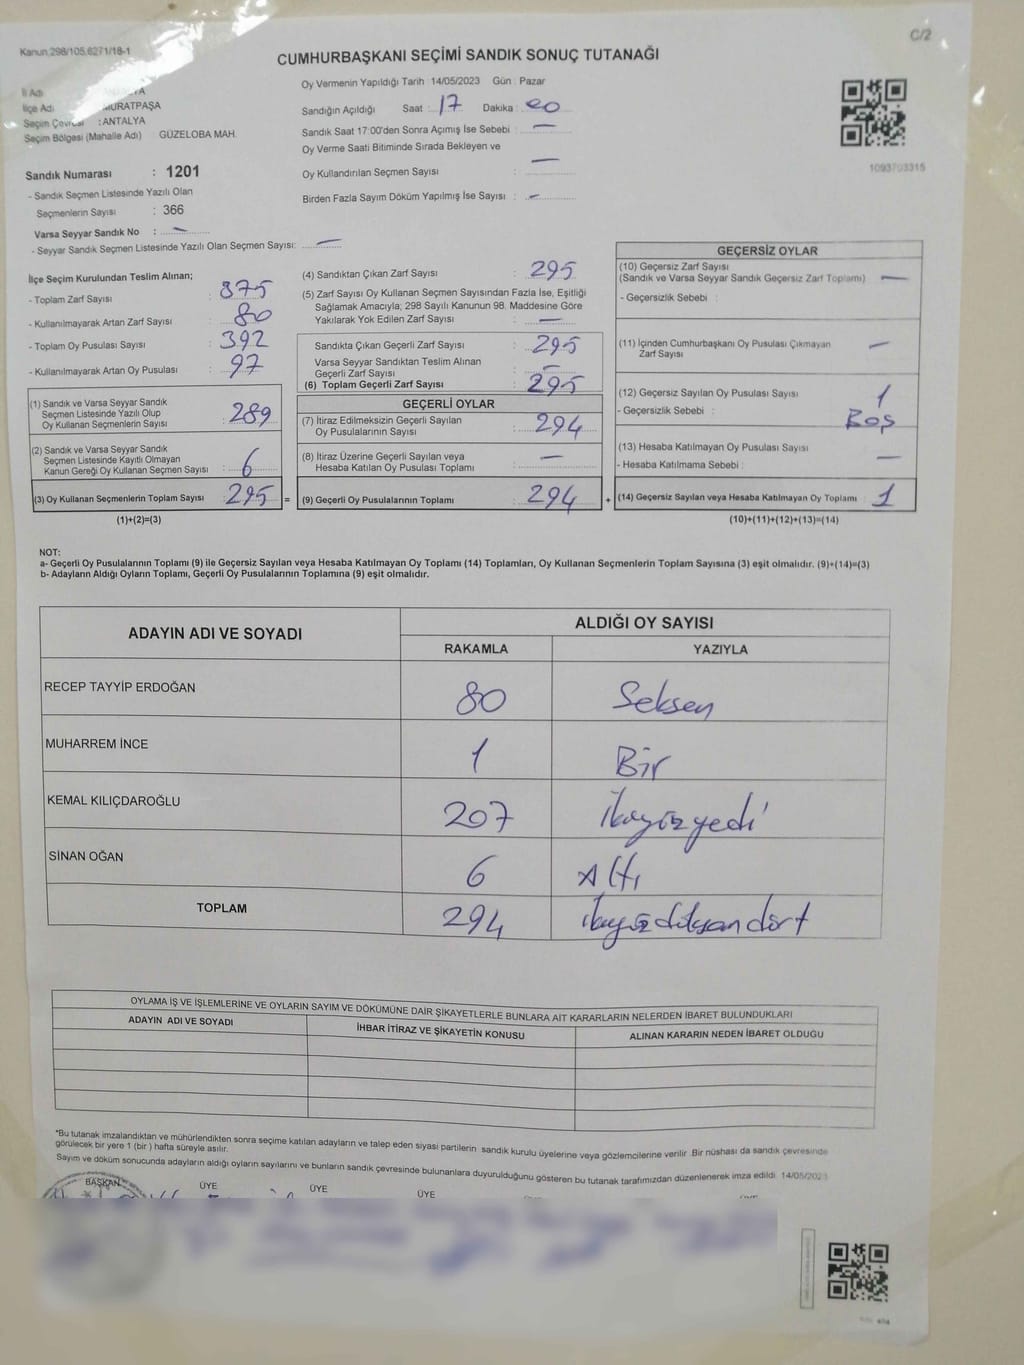 Kanun 298/105,6271/18-1
C/2
CUMHURBAŞKANI SEÇİMİ SANDIK SONUÇ TUTANAĞI
İl Adı
İlçe Adı MURATPAŞA
Seçim Çevresi : ANTALYA
Seçim Bölgesi (Mahalle Adı) GÜZELOBA MAH.
Sandık Numarası : 1201
- Sandık Seçmen Listesinde Yazılı Olan
Seçmenlerin Sayısı : 366
Varsa Seyyar Sandık No : —
- Seyyar Sandık Seçmen Listesinde Yazılı Olan Seçmen Sayısı: —
Oy Vermenin Yapıldığı Tarih : 14/05/2023 Gün : Pazar
Sandığın Açıldığı Saat : 17 Dakika : 00
Sandık Saat 17:00'den Sonra Açımış İse Sebebi : —
Oy Verme Saati Bitiminde Sırada Bekleyen ve
Oy Kullandırılan Seçmen Sayısı : —
Birden Fazla Sayım Döküm Yapılmış İse Sayısı : —
1093703315
İlçe Seçim Kurulundan Teslim Alınan;
- Toplam Zarf Sayısı : 375
- Kullanılmayarak Artan Zarf Sayısı : 80
- Toplam Oy Pusulası Sayısı : 392
- Kullanılmayarak Artan Oy Pusulası : 97
(1) Sandık ve Varsa Seyyar Sandık
Seçmen Listesinde Yazılı Olup
Oy Kullanan Seçmenlerin Sayısı : 289
(2) Sandık ve Varsa Seyyar Sandık
Seçmen Listesinde Kayıtlı Olmayan
Kanun Gereği Oy Kullanan Seçmen Sayısı : 6
(3) Oy Kullanan Seçmenlerin Toplam Sayısı : 295 =
(1)+(2)=(3)
(4) Sandıktan Çıkan Zarf Sayısı : 295
(5) Zarf Sayısı Oy Kullanan Seçmen Sayısından Fazla İse, Eşitliği
Sağlamak Amacıyla; 298 Sayılı Kanunun 98. Maddesine Göre
Yakılarak Yok Edilen Zarf Sayısı : —
Sandıkta Çıkan Geçerli Zarf Sayısı : 295
Varsa Seyyar Sandıktan Teslim Alınan
Geçerli Zarf Sayısı : —
(6) Toplam Geçerli Zarf Sayısı : 295
GEÇERLİ OYLAR
(7) İtiraz Edilmeksizin Geçerli Sayılan
Oy Pusulalarının Sayısı : 294
(8) İtiraz Üzerine Geçerli Sayılan veya
Hesaba Katılan Oy Pusulası Toplamı : —
(9) Geçerli Oy Pusulalarının Toplamı : 294 +
GEÇERSİZ OYLAR
(10) Geçersiz Zarf Sayısı
(Sandık ve Varsa Seyyar Sandık Geçersiz Zarf Toplamı) —
- Geçersizlik Sebebi :
(11) İçinden Cumhurbaşkanı Oy Pusulası Çıkmayan
Zarf Sayısı —
(12) Geçersiz Sayılan Oy Pusulası Sayısı 1
- Geçersizlik Sebebi : Boş
(13) Hesaba Katılmayan Oy Pusulası Sayısı
- Hesaba Katılmama Sebebi : —
(14) Geçersiz Sayılan veya Hesaba Katılmayan Oy Toplamı : 1
(10)+(11)+(12)+(13)=(14)
NOT:
a- Geçerli Oy Pusulalarının Toplamı (9) ile Geçersiz Sayılan veya Hesaba Katılmayan Oy Toplamı (14) Toplamları, Oy Kullanan Seçmenlerin Toplam Sayısına (3) eşit olmalıdır. (9)+(14)=(3)
b- Adayların Aldığı Oyların Toplamı, Geçerli Oy Pusulalarının Toplamına (9) eşit olmalıdır.
ADAYIN ADI VE SOYADI ALDIĞI OY SAYISI
RAKAMLA YAZIYLA
RECEP TAYYİP ERDOĞAN 80 Seksen
MUHARREM İNCE 1 Bir
KEMAL KILIÇDAROĞLU 207 İkiyüzyedi
SİNAN OĞAN 6 Altı
TOPLAM 294 ikiyüzdoksandört
OYLAMA İŞ VE İŞLEMLERİNE VE OYLARIN SAYIM VE DÖKÜMÜNE DAİR ŞİKAYETLERLE BUNLARA AİT KARARLARIN NELERDEN İBARET BULUNDUKLARI
ADAYIN ADI VE SOYADI İHBAR İTİRAZ VE ŞİKAYETİN KONUSU ALINAN KARARIN NEDEN İBARET OLDUĞU
*Bu tutanak imzalandıktan ve mühürlendikten sonra seçime katılan adayların ve talep eden siyasi partilerin sandık kurulu üyelerine veya gözlemcilerine verilir. Bir nüshası da sandık çevresinde
görülecek bir yere 1 (bir) hafta süreyle asılır.
Sayım ve döküm sonucunda adayların aldığı oyların sayılarını ve bunların sandık çevresinde bulunanlara duyurulduğunu gösteren bu tutanak tarafımızdan düzenlenerek imza edildi. 14/05/2023
BAŞKAN ÜYE ÜYE ÜYE